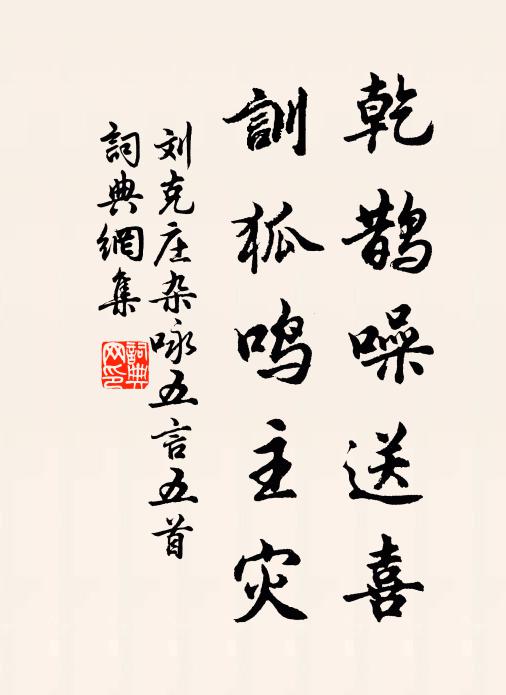 乾鹊噪送喜
訓狐鸣主灾
刘克庄杂咏五言五首
詞典網集
詞典网印